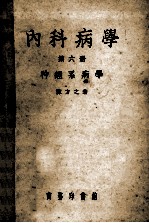 內科病學
第六冊
神經系病學
陳方之著
商務印書館